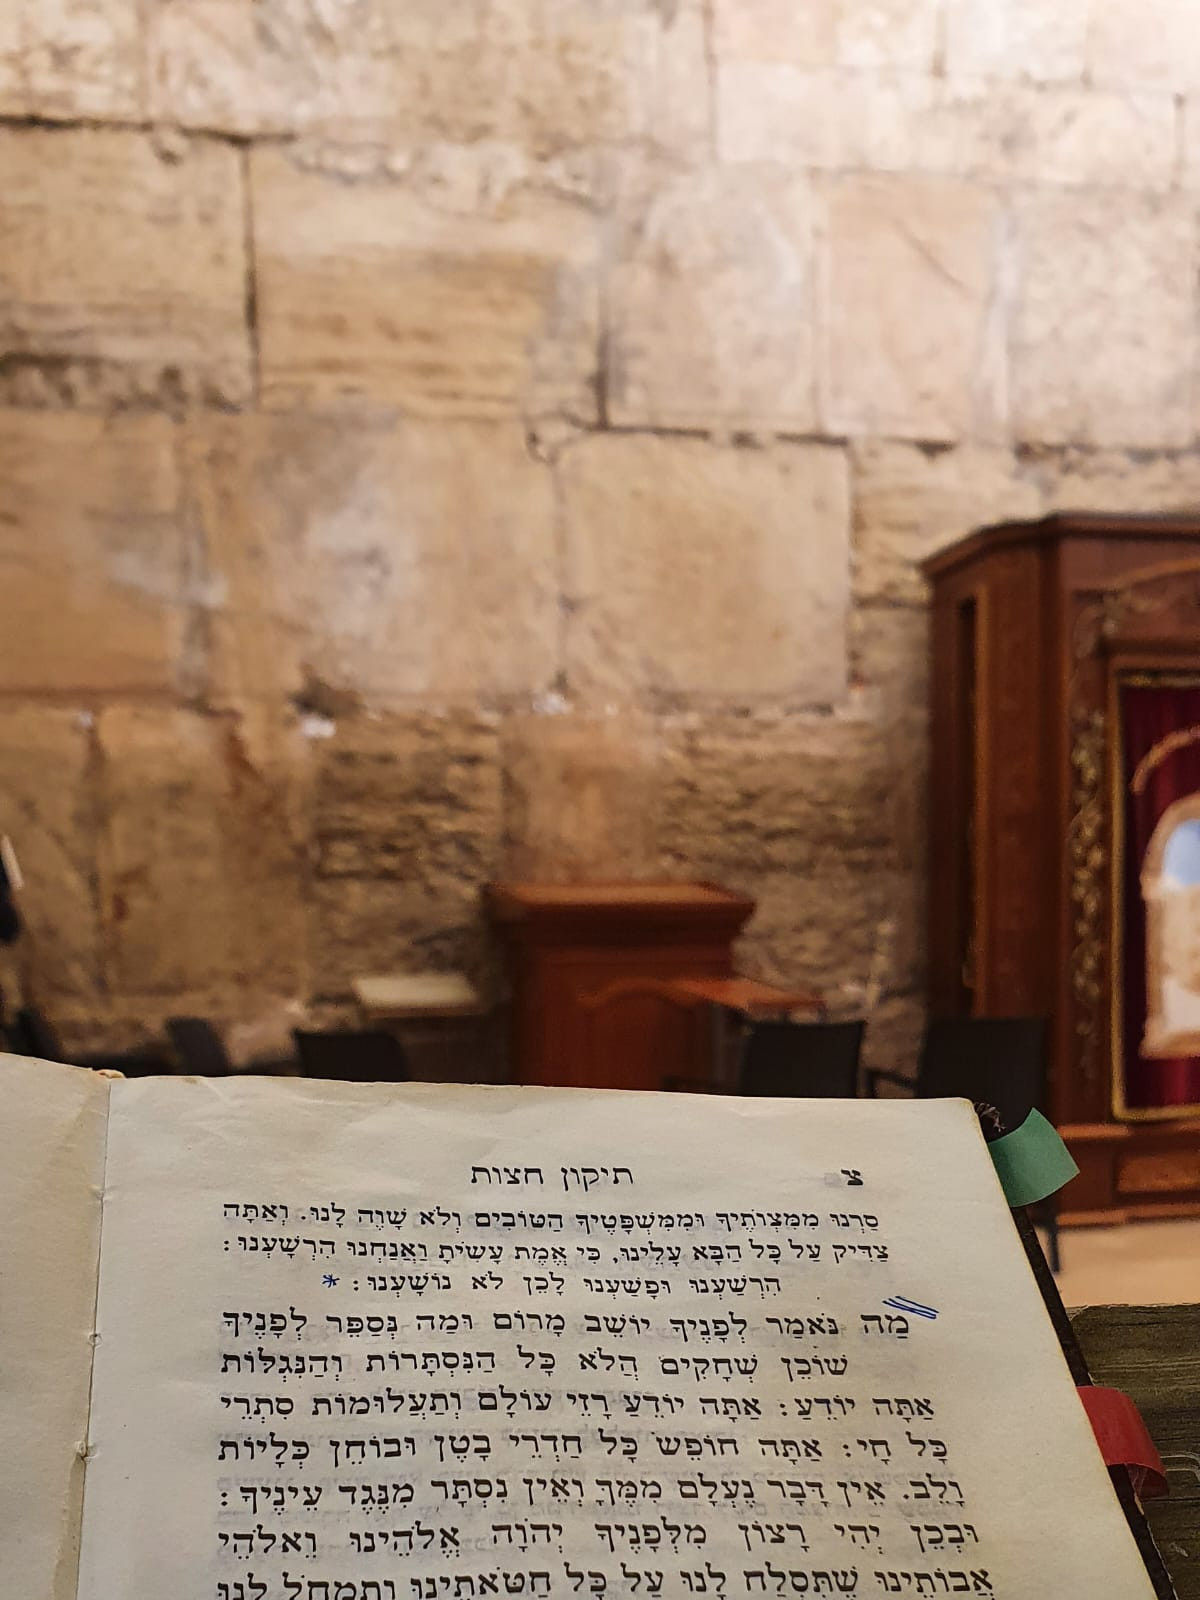 צ תיקון חצות
סַרְנוּ מִמִּצְוֹתֶיךָ וּמִמִּשְׁפָּטֶיךָ הַטּוֹבִים וְלֹא שָׁוֶה לָנוּ. וְאַתָּה
צַדִּיק עַל כָּל הַבָּא עָלֵינוּ, כִּי אֱמֶת עָשִׂיתָ וַאֲנַחְנוּ הִרְשָׁעְנוּ:
הִרְשַׁעְנוּ וּפָשַׁעְנוּ לָכֵן לֹא נוֹשָׁעְנוּ: *
מַה נֹּאמַר לְפָנֶיךָ יוֹשֵׁב מָרוֹם וּמַה נְּסַפֵּר לְפָנֶיךָ
שׁוֹכֵן שְׁחָקִים הֲלֹא כָּל הַנִּסְתָּרוֹת וְהַנִּגְלוֹת
אַתָּה יוֹדֵעַ: אַתָּה יוֹדֵעַ רָזֵי עוֹלָם וְתַעֲלוּמוֹת סִתְרֵי
כָּל חָי: אַתָּה חוֹפֵשׂ כָּל חַדְרֵי בָטֶן וּבוֹחֵן כְּלָיוֹת
וָלֵב. אֵין דָּבָר נֶעְלָם מִמֶּךָּ וְאֵין נִסְתָּר מִנֶּגֶד עֵינֶיךָ:
וּבְכֵן יְהִי רָצוֹן מִלְּפָנֶיךָ יְהֹוָה אֱלֹהֵינוּ וֵאלֹהֵי
אֲבוֹתֵינוּ שֶׁתִּסְלַח לָנוּ עַל כָּל חַטֹּאתֵינוּ וְתִמְחֹל לָנוּ